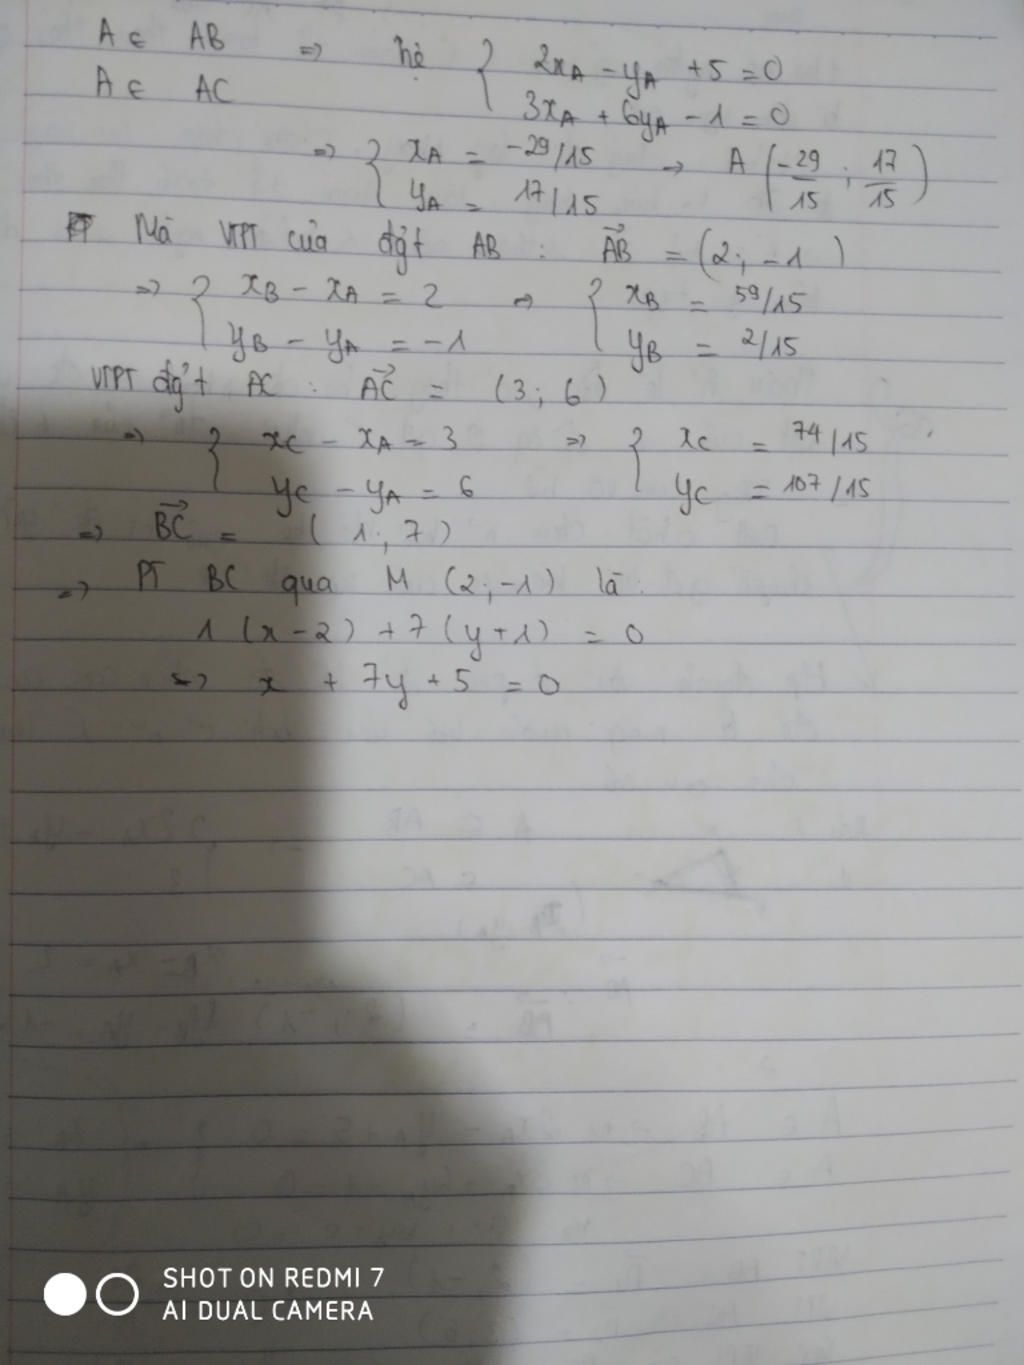 A ∈ AB ⇒ hệ { 2xA - yA + 5 = 0
A ∈ AC 3xA + 6yA - 1 = 0
⇒ { xA = -29/15 → A (-29/15 ; 17/15)
yA = 17/15
Mà VTPT của đg't AB : AB→ = (2; -1)
⇒ { xB - xA = 2 ⇒ { xB = 59/15
yB - yA = -1 yB = 2/15
VTPT đg't AC : AC→ = (3; 6)
⇒ { xC - xA = 3 ⇒ { xC = 74/15
yC - yA = 6 yC = 107/15
⇒ BC→ = (1; 7)
⇒ PT BC qua M (2; -1) là:
1 (x - 2) + 7 (y + 1) = 0
⇔ x + 7y + 5 = 0
SHOT ON REDMI 7
AI DUAL CAMERA